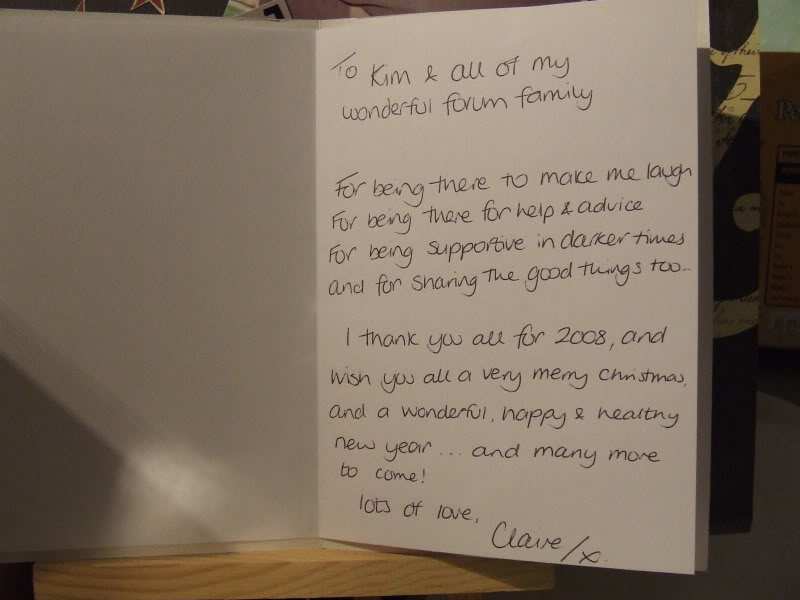 To Kim & all of my
wonderful forum family
For being there to make me laugh
For being there for help & advice
For being supportive in darker times
and for sharing the good things too...
I thank you all for 2008, and
wish you all a very merry christmas,
and a wonderful, happy & healthy
new year... and many more
to come!
lots of love,
Claire/x.